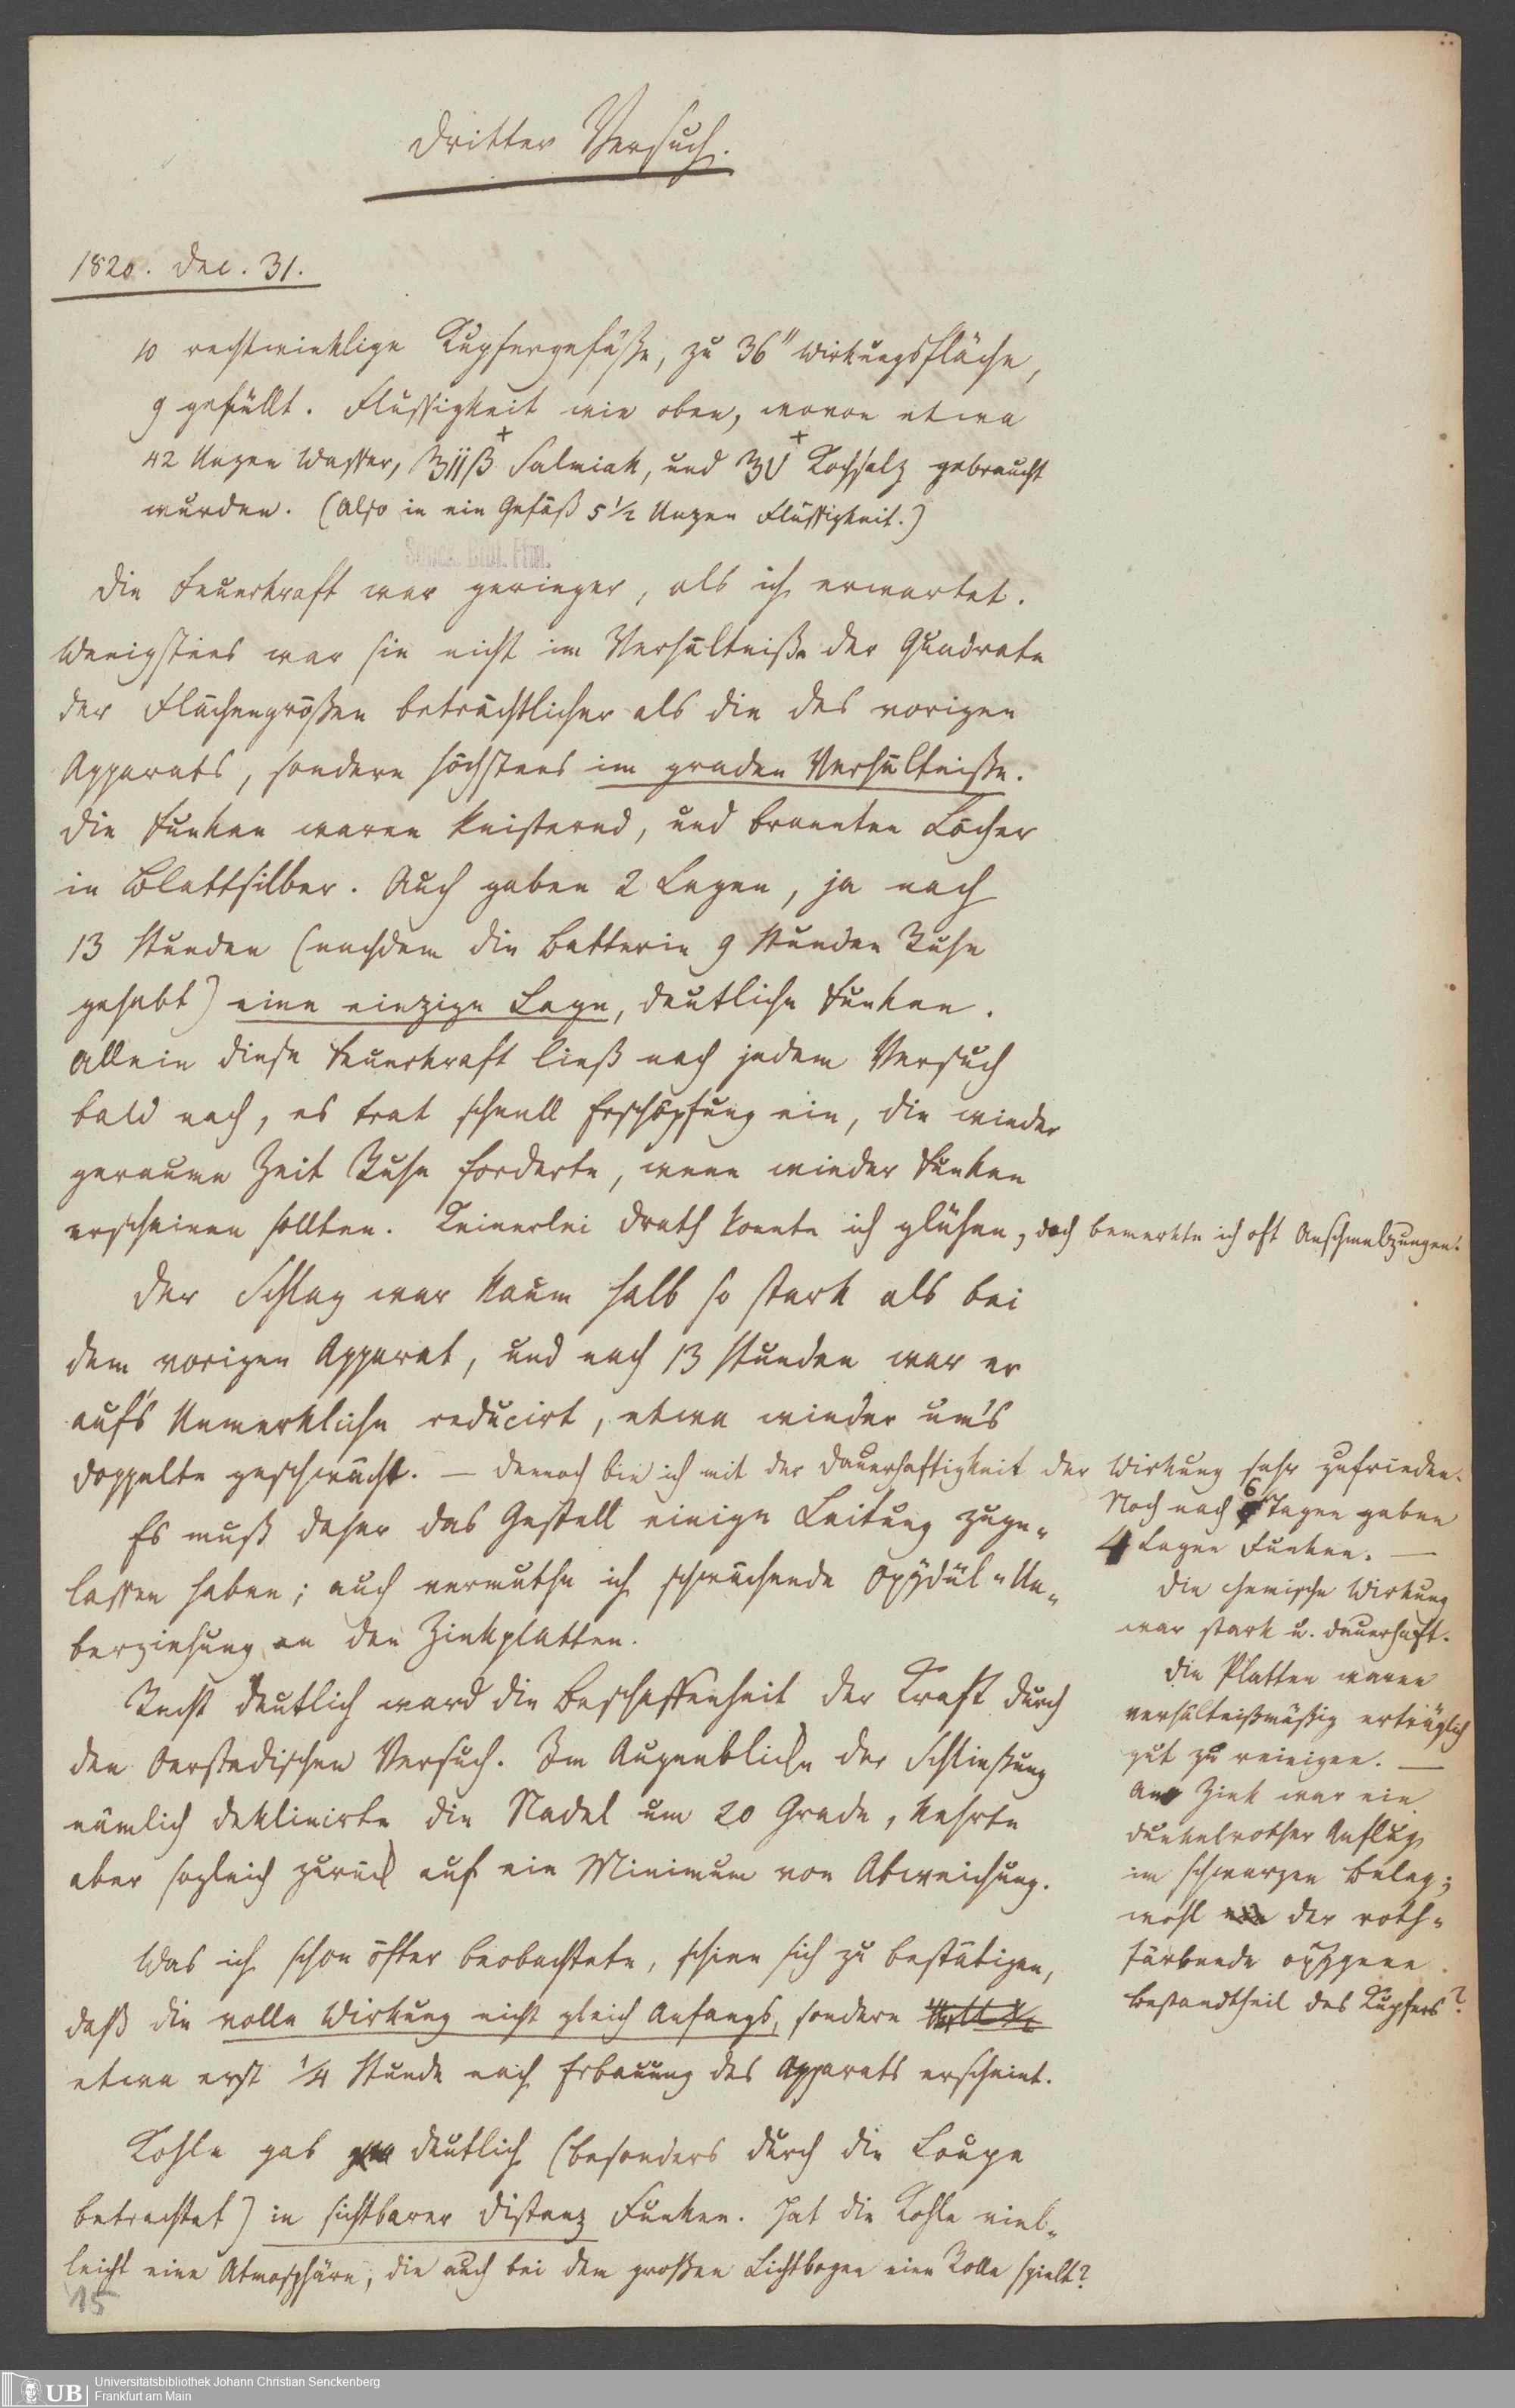 Dritter Versuch.
1820. Dec. 31.
10 rechtwinklige Kupfergefäße, zu 36" Wirkungsfläche,
9 gefüllt. Flüssigkeit wie oben, wovon etwa
42 Unzen Wasser, ʒijß + Salmiak, und ʒv + Kochsalz gebraucht
wurden. (Also in ein Gefäß 5 1/2 Unzen Flüssigkeit.)
Senck. Bibl. Ffm.
Die Feuerkraft war geringer, als ich erwartet.
Wenigstens war sie nicht im Verhältniße der Quadrate
der Flächengrößen beträchtlicher als die des vorigen
Apparats, sondern höchstens im graden Verhältniße.
Die Funken waren knisternd, und brannten Löcher
in Blattsilber. Auch gaben 2 Lagen, ja nach
13 Stunden (nachdem die Batterie 9 Stunden Ruhe
gehabt) eine einzige Lage, deutliche Funken.
Allein diese Feuerkraft ließ nach jedem Versuch
bald nach, es trat schnell Erschöpfung ein, die wieder
geraume Zeit Ruhe forderte, wenn wieder Funken
erscheinen sollten. Keinerlei Drath konnte ich glühen, doch bemerkte ich oft Anschmelzungen.
Der Schlag war kaum halb so stark als bei
dem vorigen Apparat, und nach 13 Stunden war er
auf's Unmerkliche reducirt, etwa wieder um's
doppelte geschwächt. — Dennoch bin ich mit der Dauerhaftigkeit der Wirkung sehr zufrieden.
Noch nach 6 Tagen gaben
4 Lagen Funken. —
Die chemische Wirkung
war stark u. dauerhaft.
Die Platten waren
verhältnißmäßig erträglich
gut zu reinigen. —
Am Zink war ein
dunkelrother Anflug
im schwarzen Beleg;
wohl der roth-
färbende oxygene
Bestandtheil des Kupfers?
Es muß daher das Gestell einige Leitung zuge-
lassen haben; auch vermuthe ich schwächende Oxydül-Ue-
berziehung an den Zinkplatten.
Recht deutlich ward die Beschaffenheit der Kraft durch
den Oerstedischen Versuch. Im Augenblicke der Schließung
nämlich deklinirte die Nadel um 20 Grade, kehrte
aber sogleich zurück auf ein Minimum von Abweichung.
Was ich schon öfter beobachtete, schien sich zu bestätigen,
daß die volle Wirkung nicht gleich Anfangs, sondern
etwa erst 1/4 Stunde nach Erbauung des Apparats erscheint.
Kohle gab deutlich (besonders durch die Loupe
betrachtet) in sichtbarer Distanz Funken. Hat die Kohle viel-
leicht eine Atmosphäre, die auch bei dem großen Lichtbogen eine Rolle spielt?
15
UB Universitätsbibliothek Johann Christian Senckenberg
Frankfurt am Main